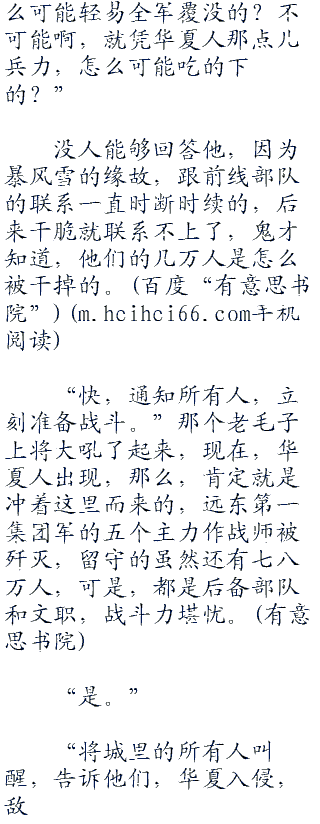 么可能轻易全军覆没的？不
可能啊，就凭华夏人那点儿
兵力，怎么可能吃的下
的？”
没人能够回答他，因为
暴风雪的缘故，跟前线部队
的联系一直时断时续的，后
来干脆就联系不上了，鬼才
知道，他们的几万人是怎么
被干掉的。(百度“有意思书
院”)(m.hcihci66.com手机
阅读)
“快，通知所有人，立
刻准备战斗。”那个老毛子
上将大吼了起来，现在，华
夏人出现，那么，肯定就是
冲着这里而来的，远东第一
集团军的五个主力作战师被
歼灭，留守的虽然还有七八
万人，可是，都是后备部队
和文职，战斗力堪忧。(有意
思书院)
“是。”
“将城里的所有人叫
醒，告诉他们，华夏入侵，
敌